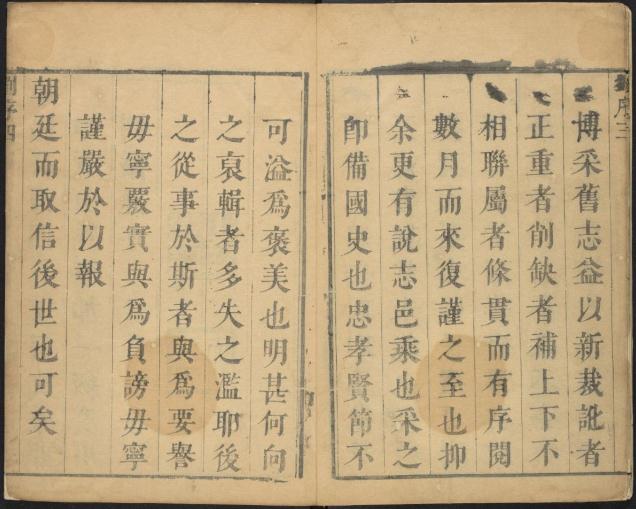 博采舊志益以新裁訛者
正重者削缺者補上下不
相聯屬者條貫而有序閱
數月而來復謹之至也抑
余更有說志邑乘也采之
卽備國史也忠孝賢節不
可溢爲褒美也明甚何向
之裒輯者多失之濫耶後
之從事於斯者與爲要譽
毋寧覈實與爲負謗毋寧
謹嚴於以報
朝廷而取信後世也可矣
序三
序四